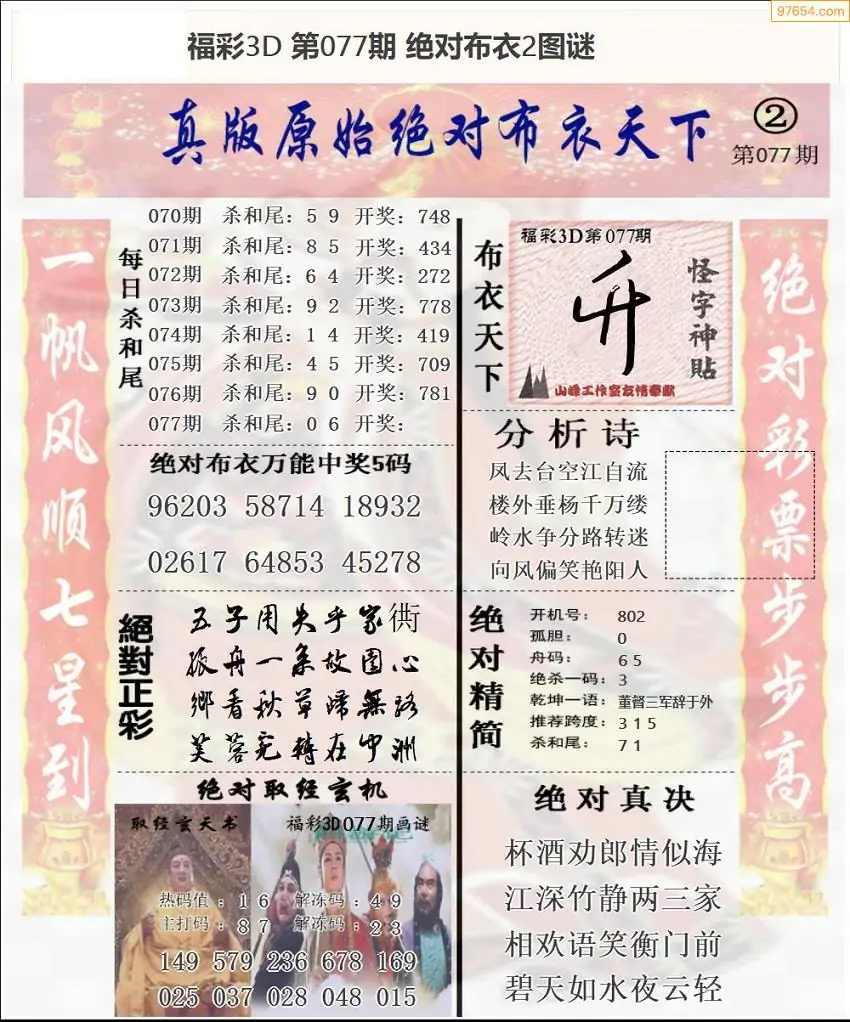 97654.com
福彩3D 第077期 绝对布衣2图谜
真版原始绝对布衣天下
②
第077期
一帆风顺七星到
每日杀和尾
070期 杀和尾：5 9 开奖：748
071期 杀和尾：8 5 开奖：434
072期 杀和尾：6 4 开奖：272
073期 杀和尾：9 2 开奖：778
074期 杀和尾：1 4 开奖：419
075期 杀和尾：4 5 开奖：709
076期 杀和尾：9 0 开奖：781
077期 杀和尾：0 6 开奖：
绝对布衣万能中奖5码
96203 58714 18932
02617 64853 45278
絕對正彩
五子用失乎家衖
孤舟一系故園心
鄉看秋草歸無路
芙蓉宛轉在中洲
绝对取经玄机
取经玄天书
福彩3D077期画谜
热码值：1 6 解冻码：4 9
主打码：8 7 解冻码：2 3
149 579 236 678 169
025 037 028 048 015
布衣天下
福彩3D第077期
怪字神贴
山峰工作室友情奉献
分析诗
凤去台空江自流
楼外垂杨千万缕
岭水争分路转迷
向风偏笑艳阳人
绝对精简
开机号：802
孤胆：0
舟码：6 5
绝杀一码：3
乾坤一语：董督三军辞于外
推荐跨度：3 1 5
杀和尾：7 1
绝对真决
杯酒劝郎情似海
江深竹静两三家
相欢语笑衡门前
碧天如水夜云轻
绝对彩票步步高